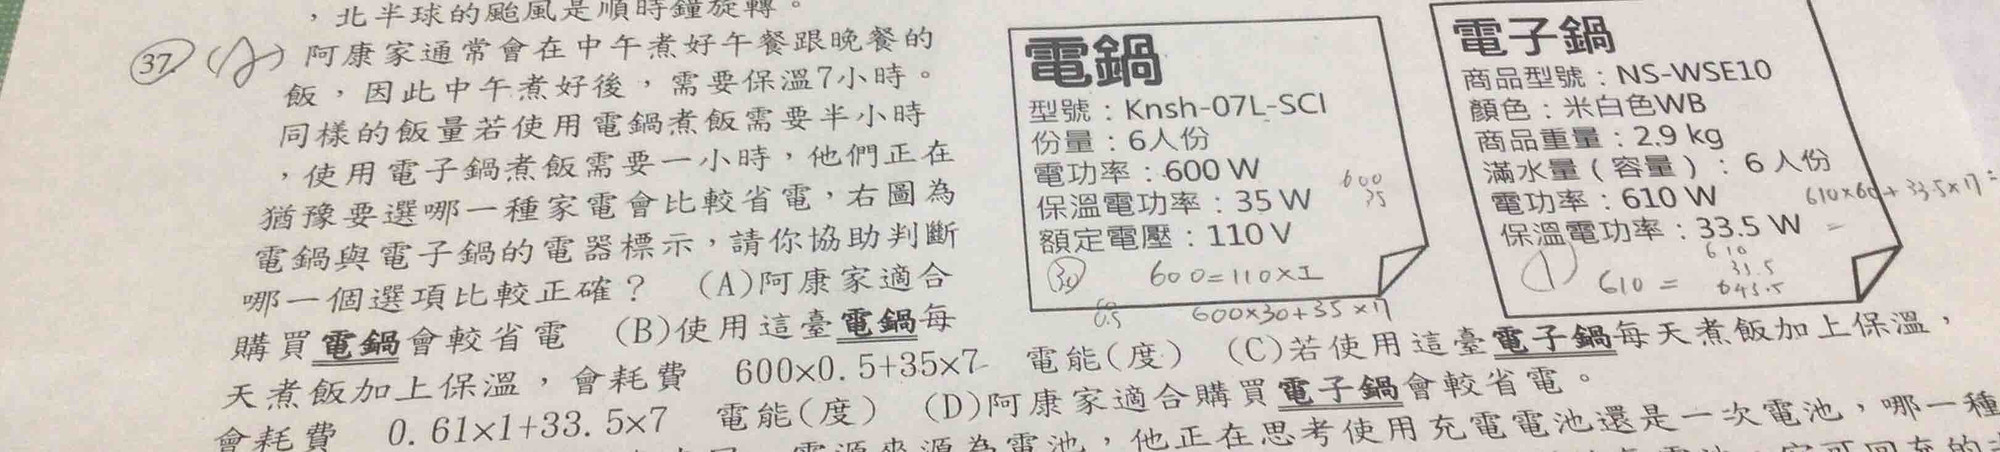 ，北半球的颱風是順時鐘旋轉。
37. (A) 阿康家通常會在中午煮好午餐跟晚餐的
飯，因此中午煮好後，需要保溫7小時。
同樣的飯量若使用電鍋煮飯需要半小時
，使用電子鍋煮飯需要一小時，他們正在
猶豫要選哪一種家電會比較省電，右圖為
電鍋與電子鍋的電器標示，請你協助判斷
哪一個選項比較正確？ (A)阿康家適合
購買電鍋會較省電 (B)使用這臺電鍋每
天煮飯加上保溫，會耗費 600×0.5+35×7 電能(度) (C)若使用這臺電子鍋每天煮飯加上保溫，
會耗費 0.61×1+33.5×7 電能(度) (D)阿康家適合購買電子鍋會較省電。
電源來源為電池，他正在思考使用充電電池還是一次電池，哪一種
電鍋
型號：Knsh-07L-SCI
份量：6人份
電功率：600 W
保溫電功率：35 W
額定電壓：110 V
600
35
30
600=110×I
0.5
600×30+35×17
電子鍋
商品型號：NS-WSE10
顏色：米白色WB
商品重量：2.9 kg
滿水量（容量）：6 人份
電功率：610 W
保溫電功率：33.5 W
610×60+33.5×17=
1
610 =
610
33.5
643.5